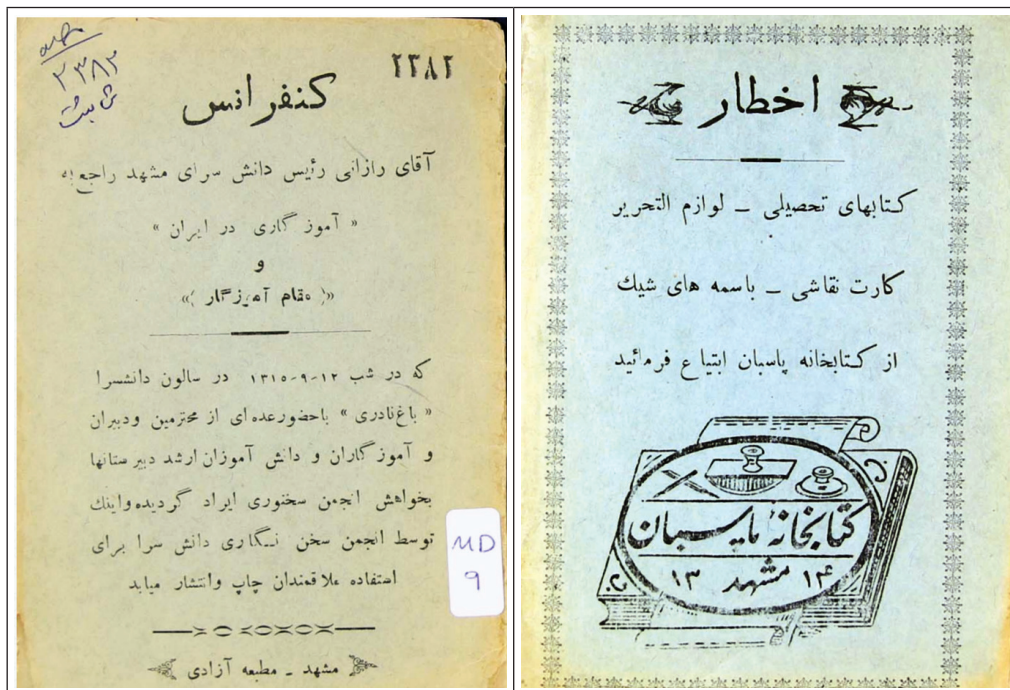 ۲۳۸۲
ثابت
۲۲۸۲
کنفرانس
آقای رازانی رئیس دانش سرای مشهد راجع به
« آموز گاری در ایران »
و
«( مقام آموزگار )»
که در شب ۱۲-۹-۱۳۱۵ در سالون دانشسرا
« باغ نادری » باحضور عده ای از محترمین ودبیران
و آموز گاران و دانش آموزان ارشد دبیر ستانها
بخواهش انجمن سخنوری ایراد گردیده واینك
توسط انجمن سخن نـگاری دانش سرا برای
استفاده علا قمندان چاپ وانتشار میابد
مشهد ـ مطبعه آزادی
MD
9
اخطار
کتابهای تحصیلی ـ لوازم التحریر
کارت نقاشی ـ باسمه های شیك
از کتابخانه پاسبان ابتیاع فرمائید
کتابخانهٔ پاسبان
۱۳ مشهد ۱۴